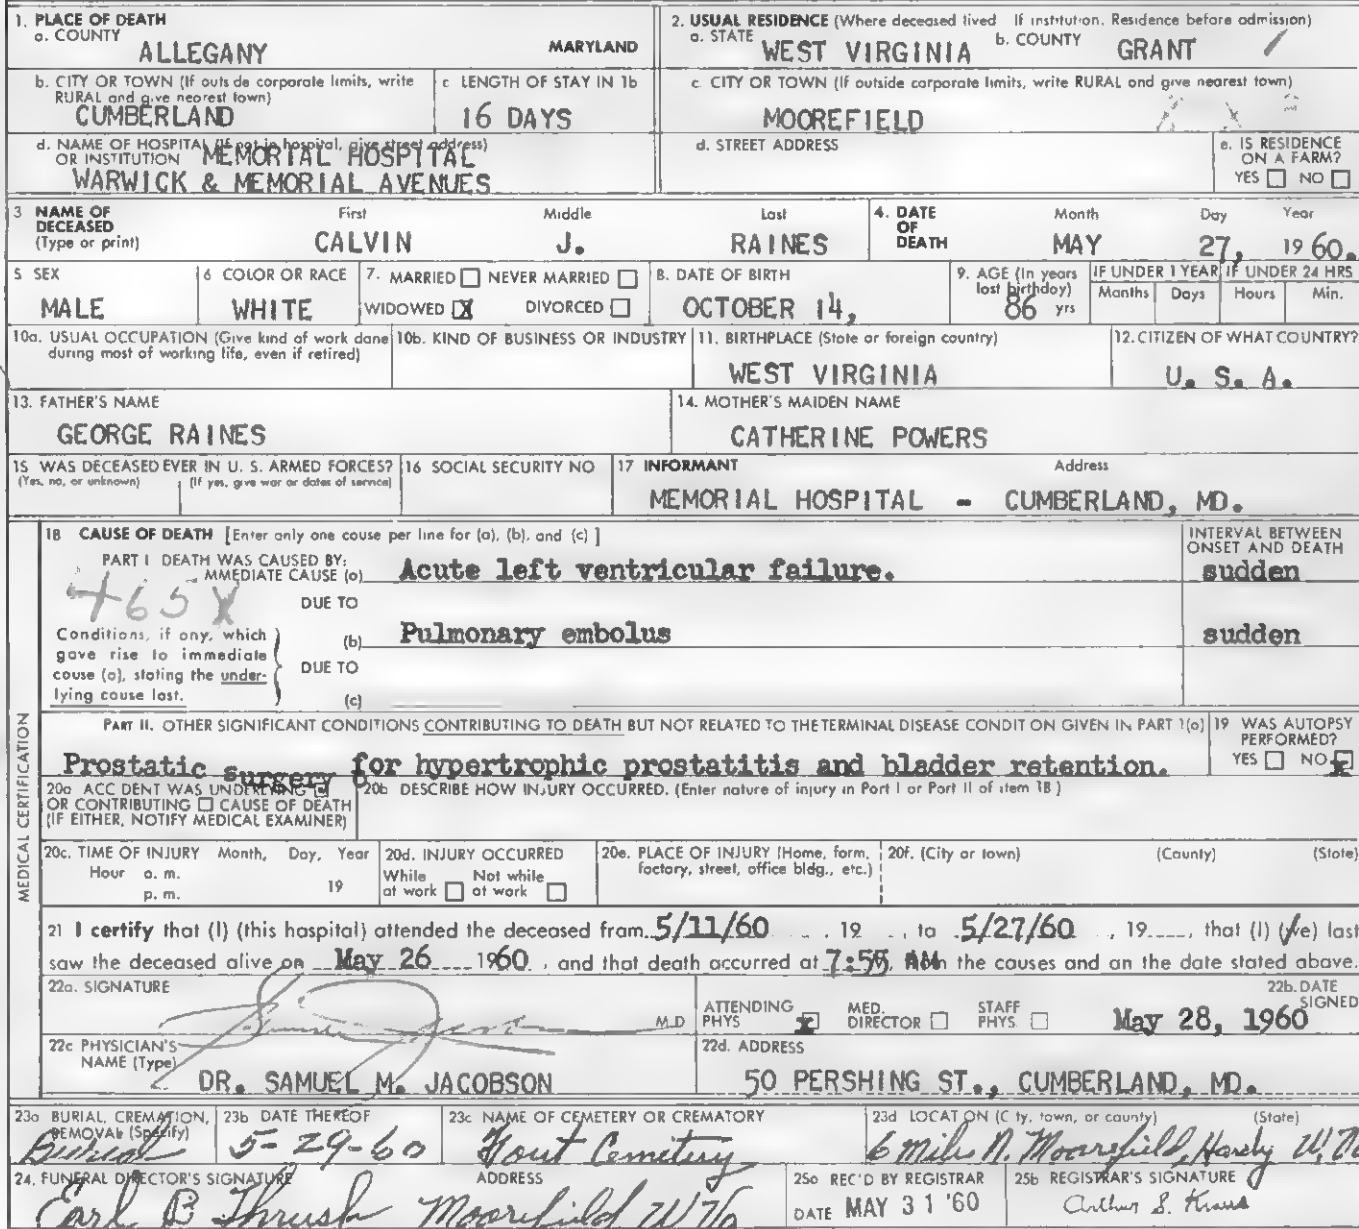 1. PLACE OF DEATH
a. COUNTY
ALLEGANY MARYLAND
2. USUAL RESIDENCE (Where deceased lived If institution. Residence before admission)
a. STATE WEST VIRGINIA b. COUNTY GRANT
b. CITY OR TOWN (If outside corporate limits, write
RURAL and give nearest town)
CUMBERLAND
c LENGTH OF STAY IN 1b
16 DAYS
c. CITY OR TOWN (If outside corporate limits, write RURAL and give nearest town)
MOOREFIELD
d. NAME OF HOSPITAL (If not in hospital, give street address)
OR INSTITUTION MEMORIAL HOSPITAL
WARWICK & MEMORIAL AVENUES
d. STREET ADDRESS
e. IS RESIDENCE
ON A FARM?
YES NO
3 NAME OF
DECEASED
(Type or print)
First Middle Last
CALVIN J. RAINES
4. DATE
OF
DEATH
Month Day Year
MAY 27, 1960.
5 SEX
MALE
6 COLOR OR RACE
WHITE
7. MARRIED NEVER MARRIED
WIDOWED X DIVORCED
8. DATE OF BIRTH
OCTOBER 14,
9. AGE (In years
last birthday)
86 yrs
IF UNDER 1 YEAR
Months Days
IF UNDER 24 HRS
Hours Min.
10a. USUAL OCCUPATION (Give kind of work done
during most of working life, even if retired)
10b. KIND OF BUSINESS OR INDUSTRY
11. BIRTHPLACE (State or foreign country)
WEST VIRGINIA
12. CITIZEN OF WHAT COUNTRY?
U. S. A.
13. FATHER'S NAME
GEORGE RAINES
14. MOTHER'S MAIDEN NAME
CATHERINE POWERS
15 WAS DECEASED EVER IN U. S. ARMED FORCES?
(Yes, no, or unknown) (If yes, give war or dates of service)
16 SOCIAL SECURITY NO
17 INFORMANT Address
MEMORIAL HOSPITAL - CUMBERLAND, MD.
MEDICAL CERTIFICATION
18 CAUSE OF DEATH [Enter only one cause per line for (a), (b), and (c) ]
INTERVAL BETWEEN
ONSET AND DEATH
PART I DEATH WAS CAUSED BY:
IMMEDIATE CAUSE (a) Acute left ventricular failure. sudden
465X
DUE TO
Conditions, if any, which
gave rise to immediate
cause (a), stating the under-
lying cause last.
(b) Pulmonary embolus sudden
DUE TO
(c)
PART II. OTHER SIGNIFICANT CONDITIONS CONTRIBUTING TO DEATH BUT NOT RELATED TO THE TERMINAL DISEASE CONDITION GIVEN IN PART 1(a)
Prostatic surgery for hypertrophic prostatitis and bladder retention.
19 WAS AUTOPSY
PERFORMED?
YES NO x
20a ACCIDENT WAS UNDERLYING
OR CONTRIBUTING CAUSE OF DEATH
(IF EITHER, NOTIFY MEDICAL EXAMINER)
20b DESCRIBE HOW INJURY OCCURRED. (Enter nature of injury in Part I or Part II of item 18)
20c. TIME OF INJURY Month, Day, Year
Hour a. m.
p. m. 19
20d. INJURY OCCURRED
While at work Not while at work
20e. PLACE OF INJURY (Home, farm,
factory, street, office bldg., etc.)
20f. (City or town) (County) (State)
21 I certify that (I) (this hospital) attended the deceased from 5/11/60, 19 , to 5/27/60, 19 , that (I) (we) last
saw the deceased alive on May 26 1960, and that death occurred at 7:55 AM from the causes and on the date stated above.
22a. SIGNATURE
M.D
ATTENDING
PHYS x
MED.
DIRECTOR
STAFF
PHYS.
22b. DATE
SIGNED
May 28, 1960
22c PHYSICIAN'S
NAME (Type)
DR. SAMUEL M. JACOBSON
22d. ADDRESS
50 PERSHING ST., CUMBERLAND, MD.
23a BURIAL, CREMATION,
REMOVAL (Specify)
Burial
23b DATE THEREOF
5-29-60
23c NAME OF CEMETERY OR CREMATORY
Cemetery
23d LOCATION (City, town, or county) (State)
6 Miles N. Moorefield, Hardy W. Va
24. FUNERAL DIRECTOR'S SIGNATURE ADDRESS
Earl B Thrush Moorefield W Va
25a REC'D BY REGISTRAR
DATE MAY 31 '60
25b REGISTRAR'S SIGNATURE
Arthur S. Kraus